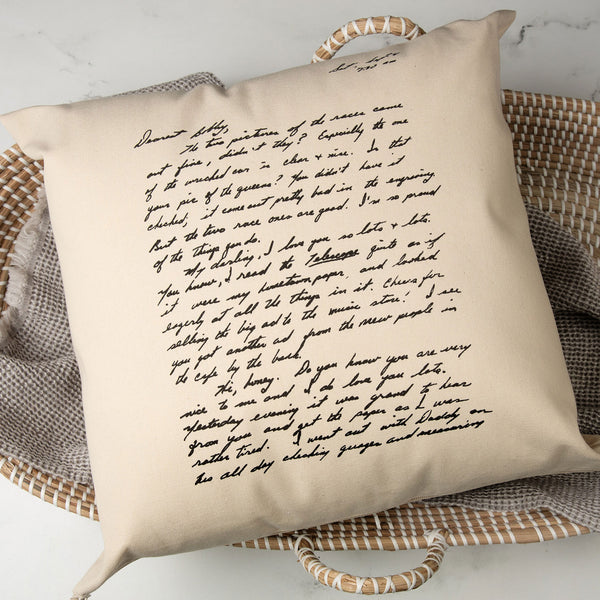 Sat. Sept 6
7:30 PM
Dearest Bobby,
The two pictures of the races came
out fine, didn't they? Especially the one
of the wrecked car is clear & nice. Is that
your pic of the queens? You didn't have it
checked, it came out pretty bad in the engraving.
But the two race ones are good. I'm so proud
of the things you do.
My darling, I love you so lots & lots.
You know, I read the Telescope quite as if
it were my hometown paper, and looked
eagerly at all the things in it. Cheers for
selling the big ad to the music store! I see
you got another ad from the new people in
the cafe by the bank.
Hi, honey. Do you know you are very
nice to me and I do love you lots.
Yesterday evening it was grand to hear
from you and get the paper as I was
rather tired. I went out with Daddy on
his all day checking gauges and measuring